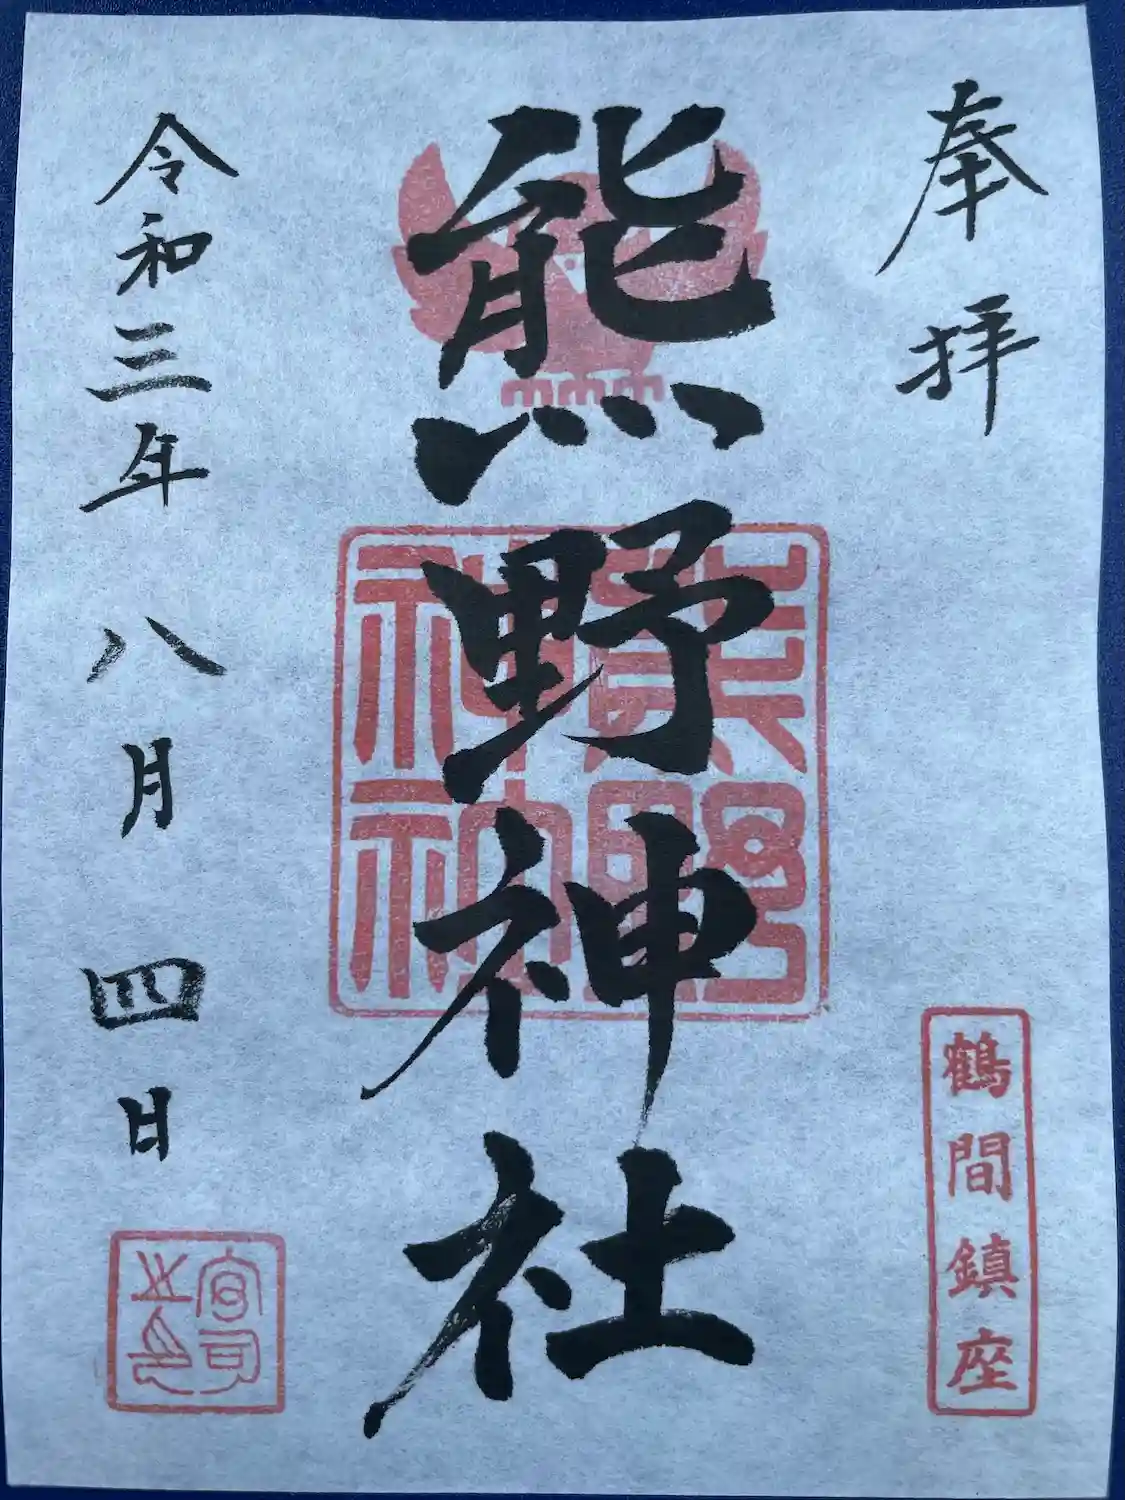 奉拝
鶴間鎮座
熊野神社
令和三年八月四日
宮司之印